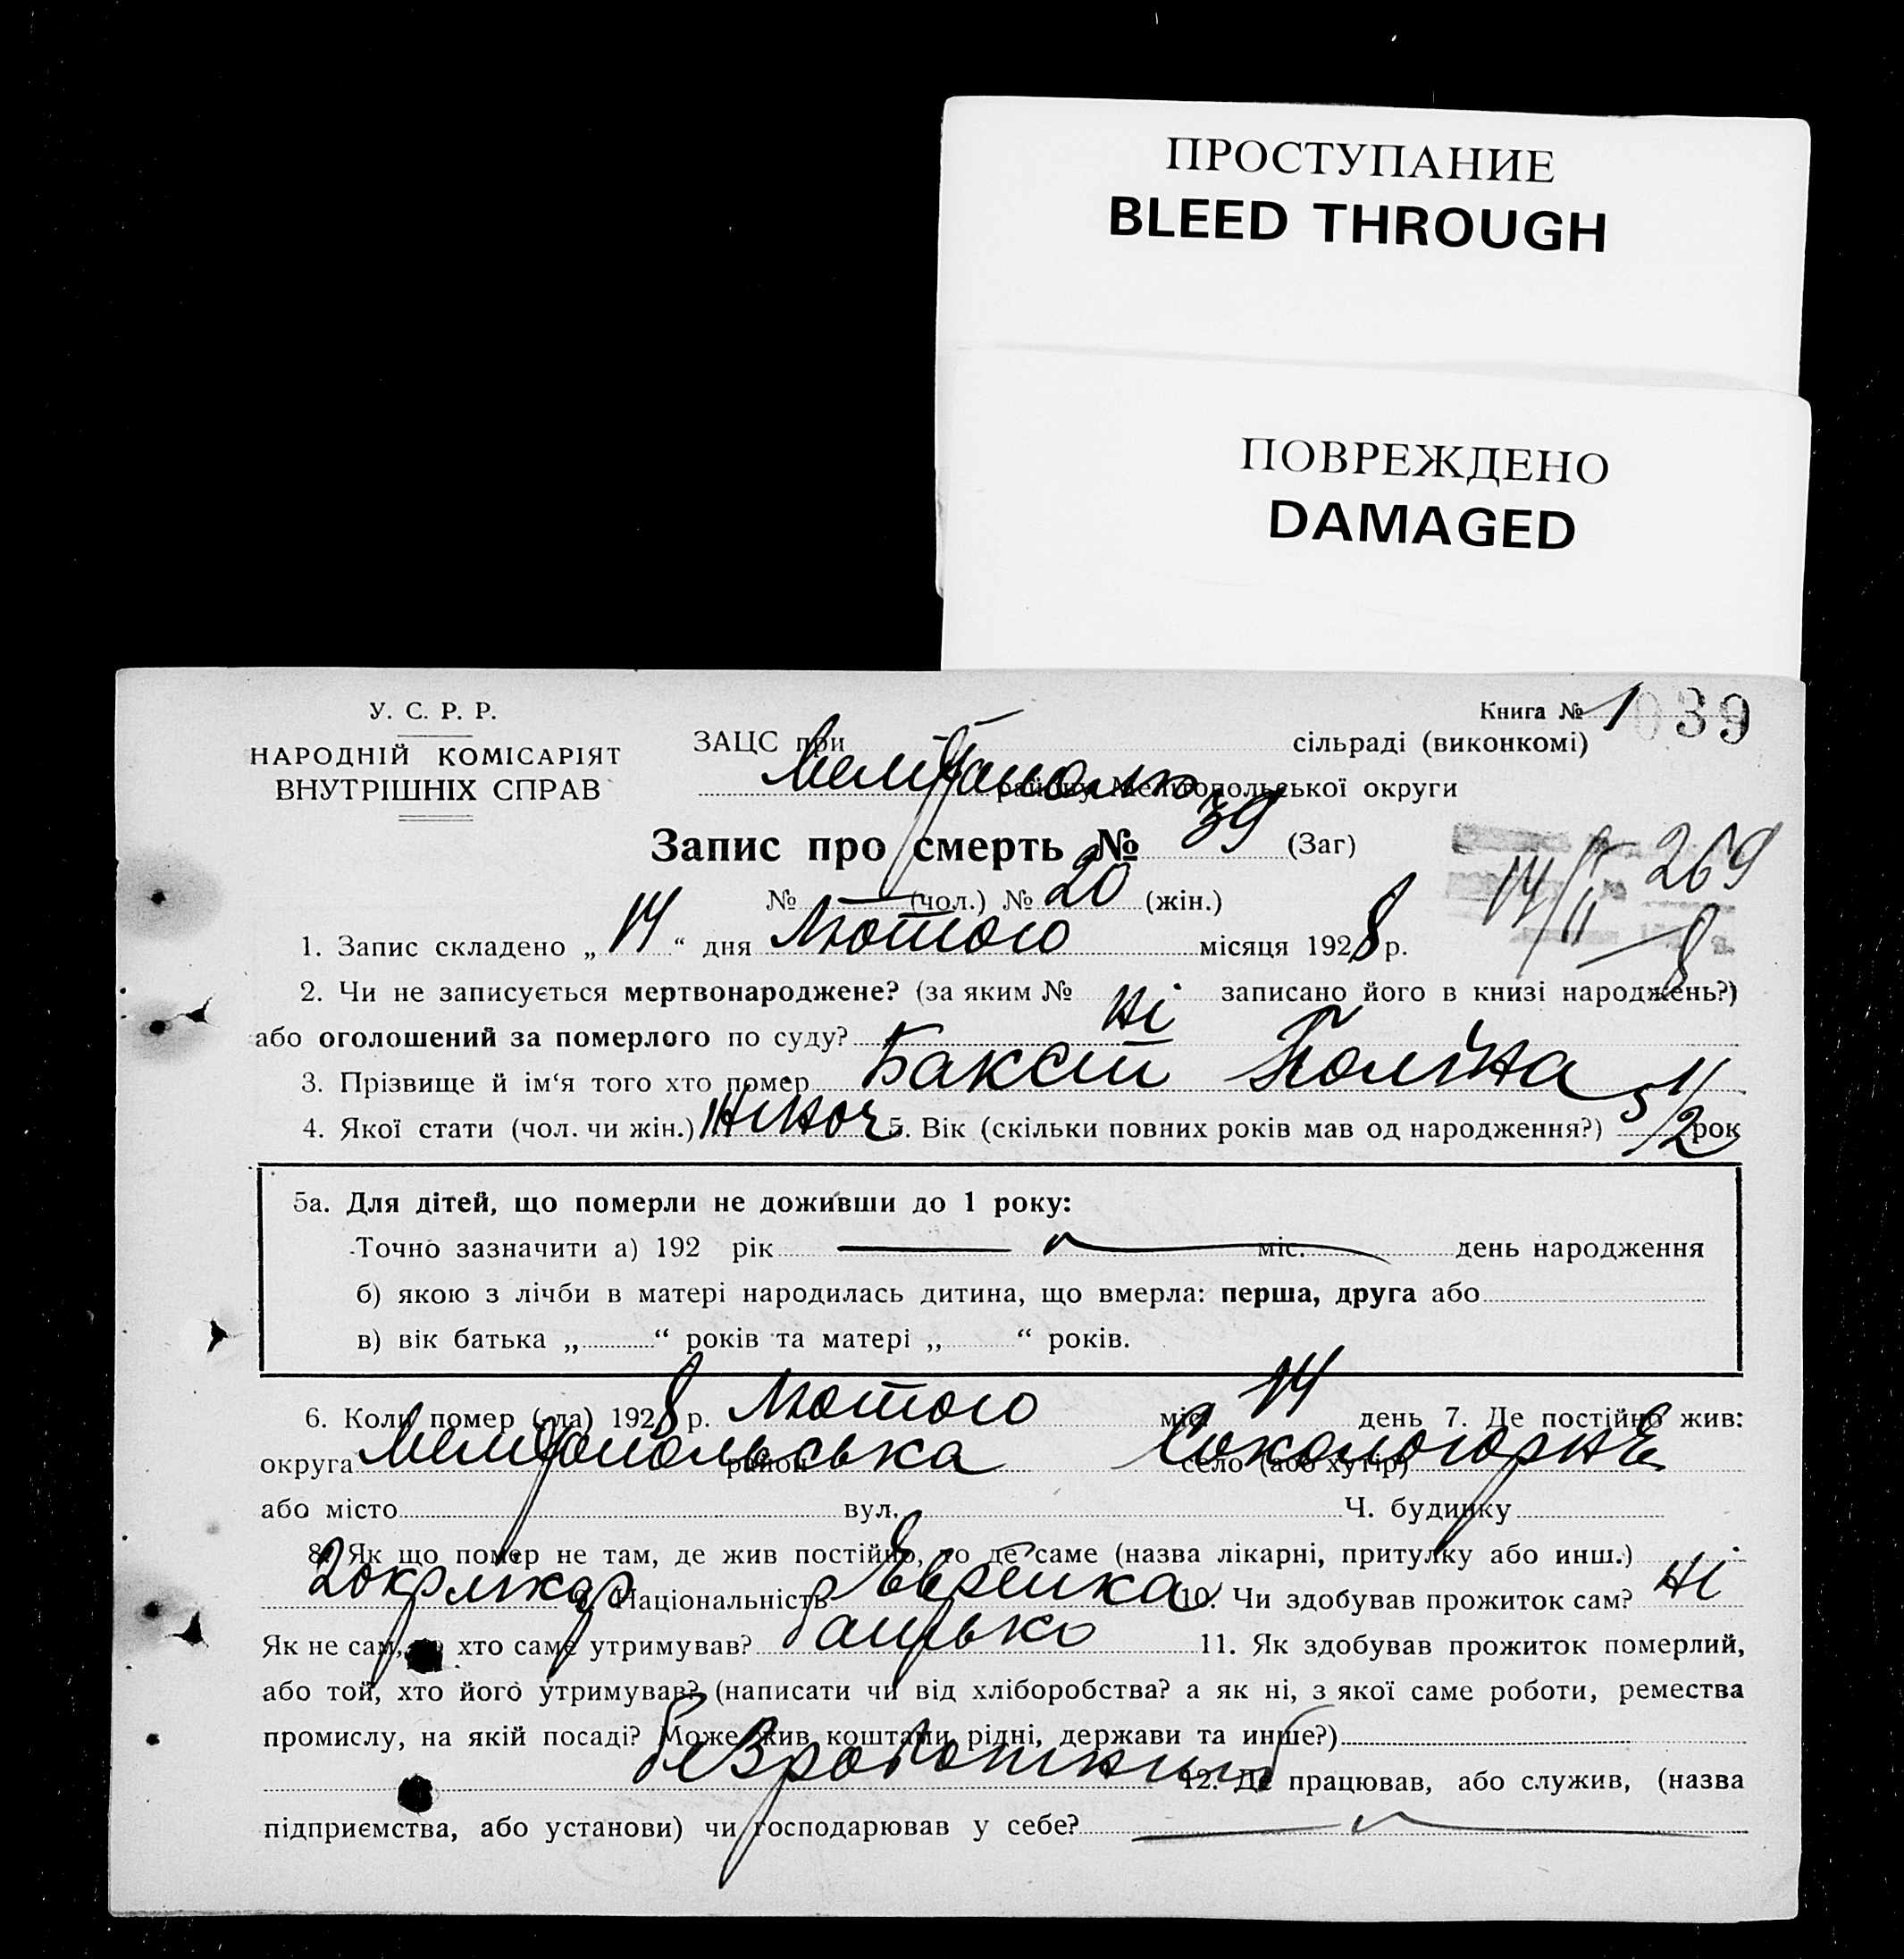 ПРОСТУПАНИЕ
BLEED THROUGH
ПОВРЕЖДЕНО
DAMAGED
У. С. Р. Р.
НАРОДНІЙ КОМІСАРІЯТ
ВНУТРІШНІХ СПРАВ
Книга № 1 039
ЗАЦС при сільраді (виконкомі)
району Мелітопольської округи
Запис про смерть № 39 (Заг)
№ — (чол.) № 20 (жін.)
14/II 269
8
1. Запис складено „ 14 “ дня Лютого місяця 1928 р.
2. Чи не записується мертвонароджене? (за яким № записано його в книзі народжень?)
або оголошений за померлого по суду? Ні
3. Прізвище й ім‘я того хто помер Баксет Поліна
4. Якої стати (чол. чи жін.) Жіноч 5. Вік (скільки повних років мав од народження?) 5 1/2 рок
5а. Для дітей, що померли не доживши до 1 року:
Точно зазначити а) 192 рік міс. день народження
б) якою з лічби в матері народилась дитина, що вмерла: перша, друга або
в) вік батька „ “ років та матері „ “ років.
6. Коли помер (-ла) 1928 р. Лютого міс. 14 день 7. Де постійно жив:
округа Мелітопольська район село (або хутір) Сокологорне
або місто вул. Ч. будинку
8. Як що помер не там, де жив постійно, то де саме (назва лікарні, притулку або инш.)
2 окрлікар 9. Національність Еврейка 10. Чи здобував прожиток сам? Ні
Як не сам, хто саме утримував? батько 11. Як здобував прожиток померлий,
або той, хто його утримував? (написати чи від хліборобства? а як ні, з якої саме роботи, ремества
промислу, на якій посаді? Може жив коштами рідні, держави та инше?)
безработний 12. Де працював, або служив, (назва
підприємства, або установи) чи господарював у себе?